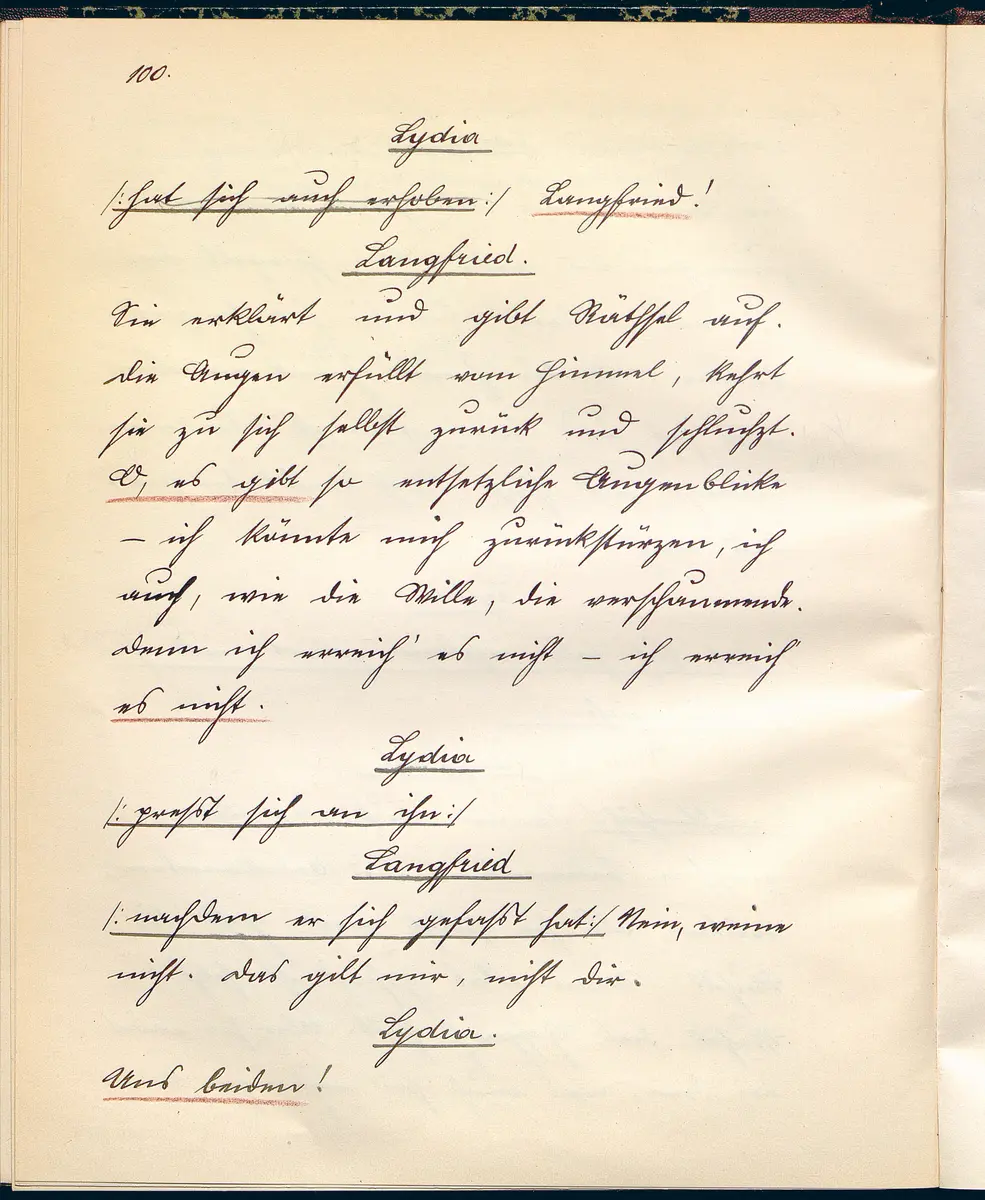 100.
Lydia
/: hat sich auch erhoben :/ Langfried!
Langfried.
Sie erklärt und gibt Räthsel auf.
Die Augen erfüllt vom Himmel, kehrt
sie zu sich selbst zurück und schluchzt.
O, es gibt so entsetzliche Augenblicke
– ich könnte mich zurückstürzen, ich
auch, wie die Welle, die verschäumende.
Denn ich erreich' es nicht – ich erreich'
es nicht.
Lydia
/: presst sich an ihn :/
Langfried
/: nachdem er sich gefasst hat :/ Nein, weine
nicht. Das gilt mir, nicht dir.
Lydia.
Uns beiden!